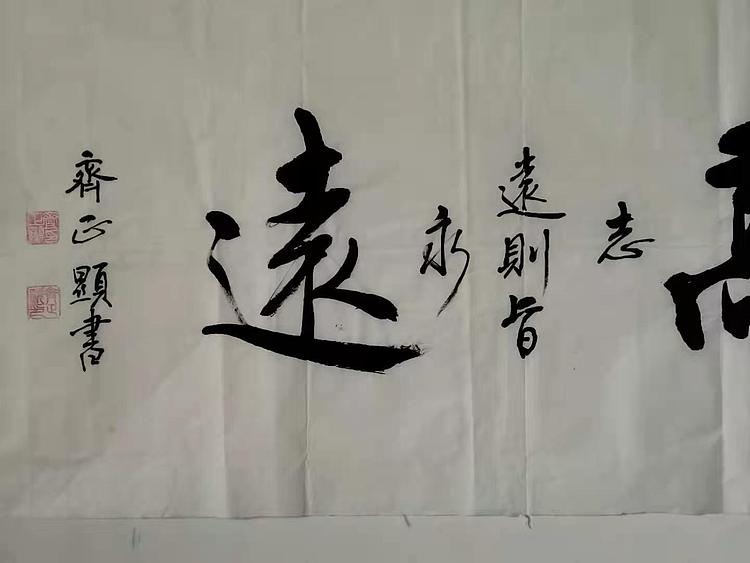 志
遠則旨
永
遠
齊正顯書